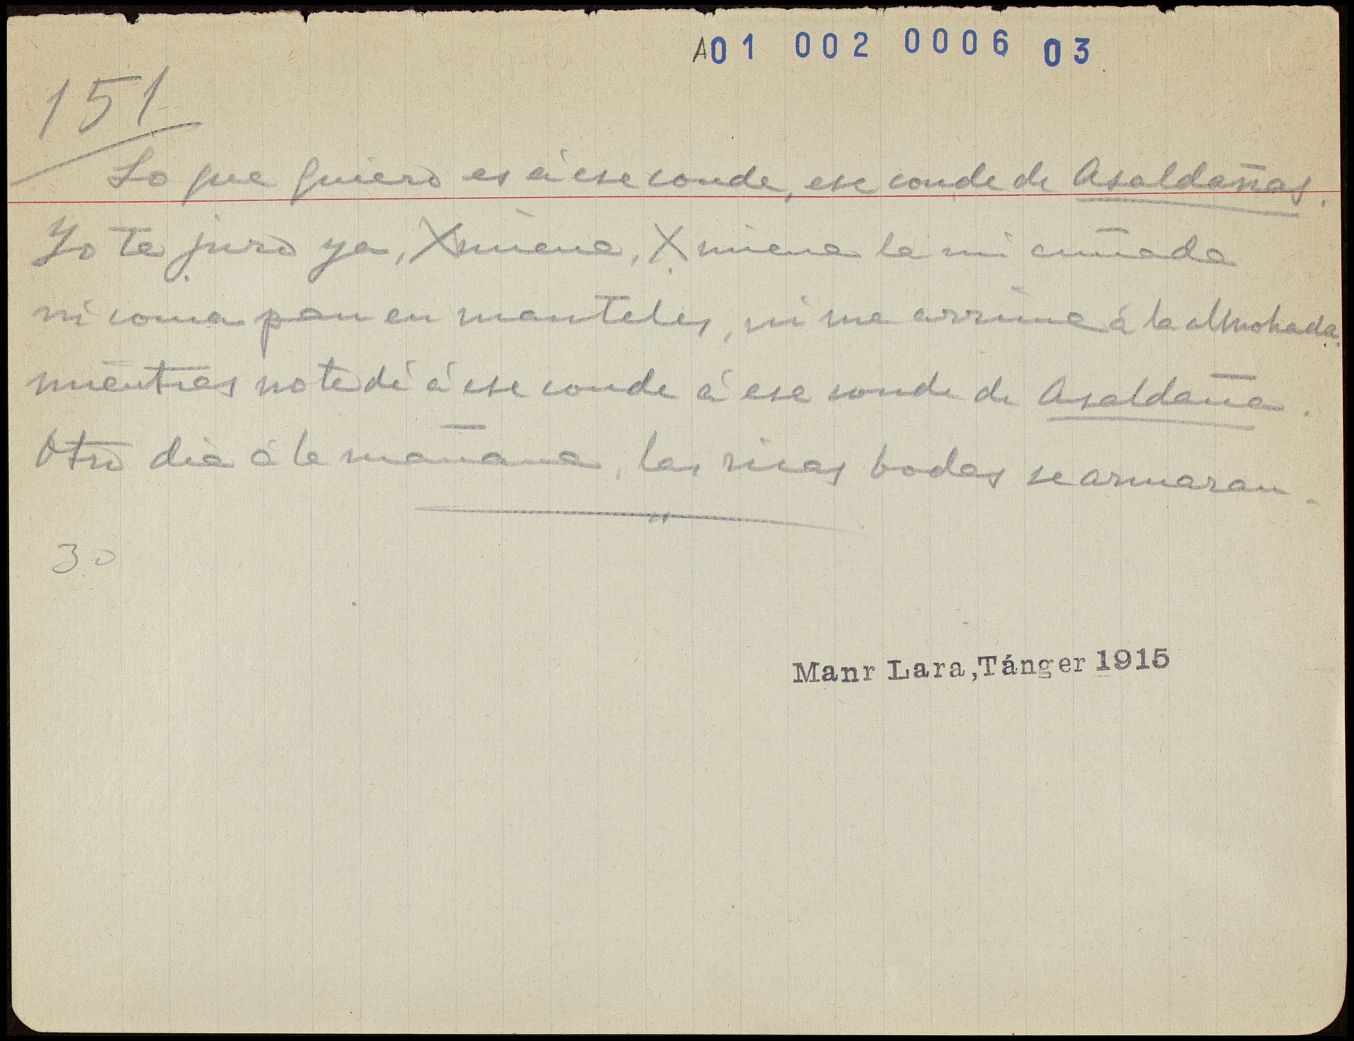 A01 002 0006 03
151
Lo que quiero es á ese conde, ese conde de Asaldañas.
Yo te juro ya, Ximena, Ximena la mi cuñada
ni coma pan en manteles, ni me arrime á la almohada.
mientras no te dé á ese conde á ese conde de Asaldaña.
Otro dia á la mañana, las ricas bodas se armaran.
30
Manr Lara,Tánger 1915